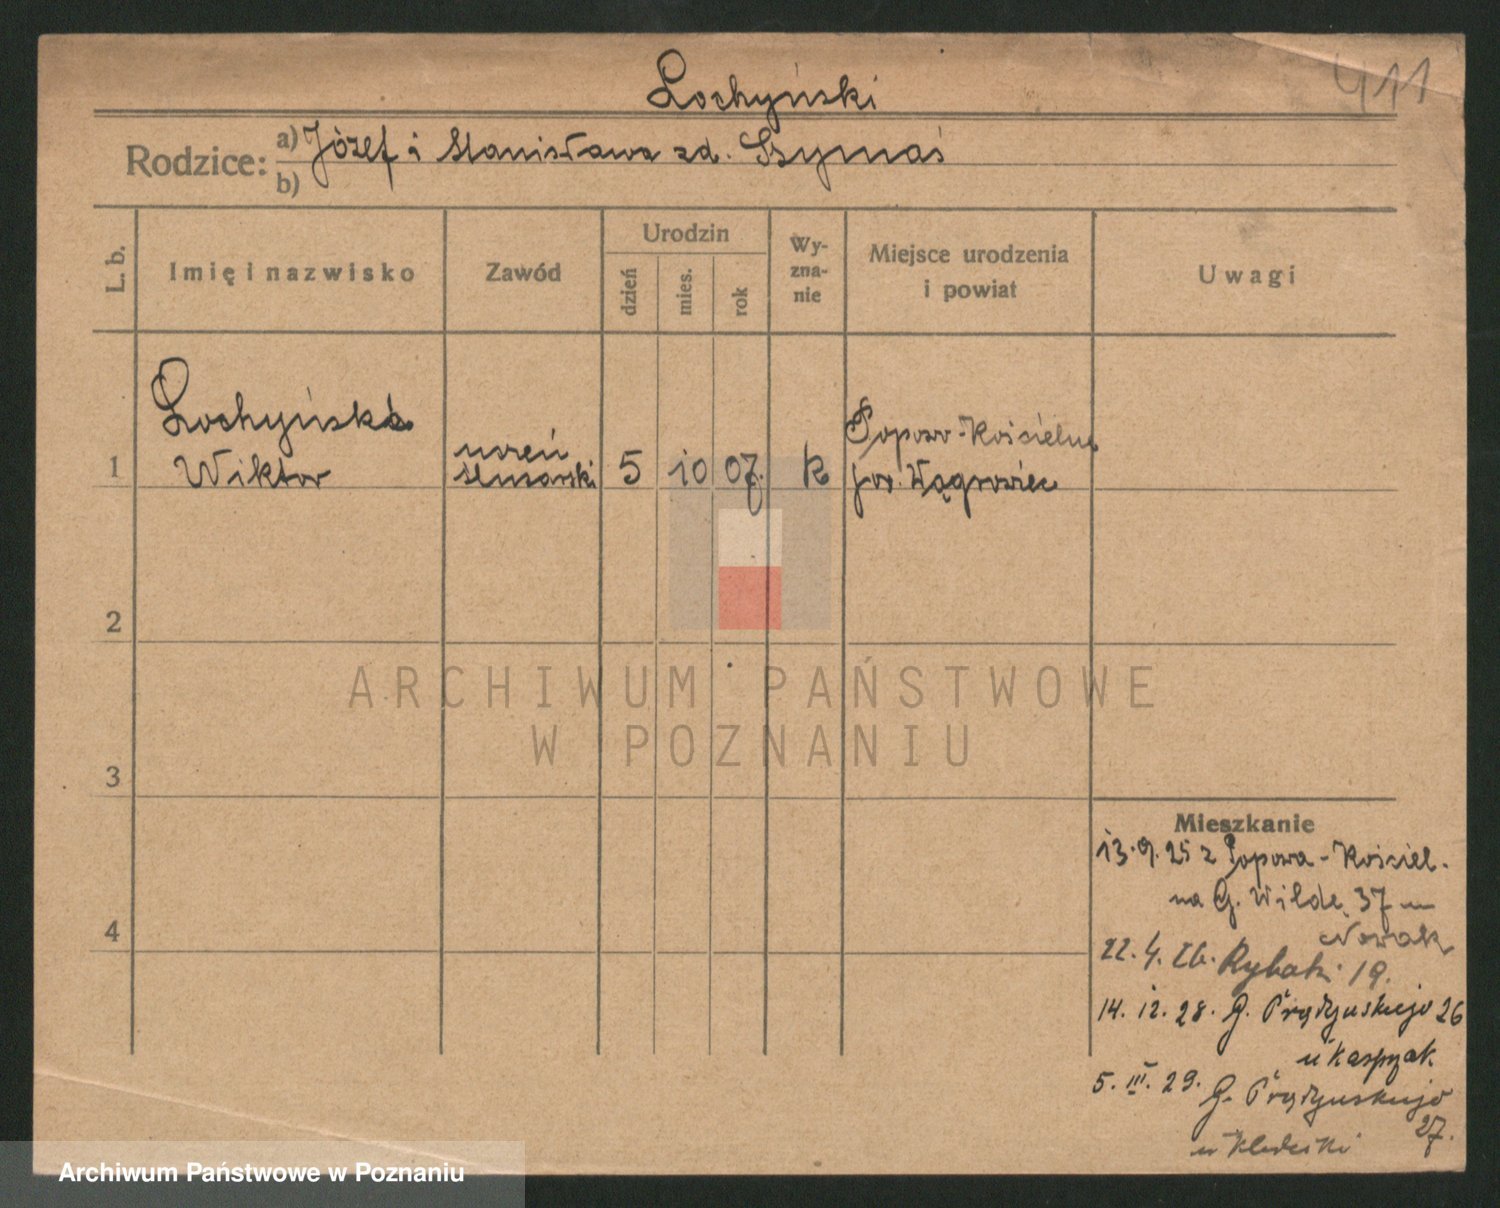 Łochyński
411
Rodzice: a) Józef i Stanisława zd. Szymaś
b)
L. b.
Imię i nazwisko
Zawód
Urodzin
dzień
mies.
rok
Wy-
zna-
nie
Miejsce urodzenia
i powiat
Uwagi
Łochyński
Wiktor
uczeń
ślusarski
1
5
10
07.
k
Popowo-Kościelne
pow. Wągrowiec
2
3
4
ARCHIWUM PAŃSTWOWE
W POZNANIU
Mieszkanie
13.9.25 z Popowa-Kościel.
na G. Wilde 37 u
Nowak
22.4.26. Rybaki 19.
14.12.28. G. Prądzyńskiego 26
u Kaspzak
5.III.29. G. Prądzyńskiego
27.
Archiwum Państwowe w Poznaniu